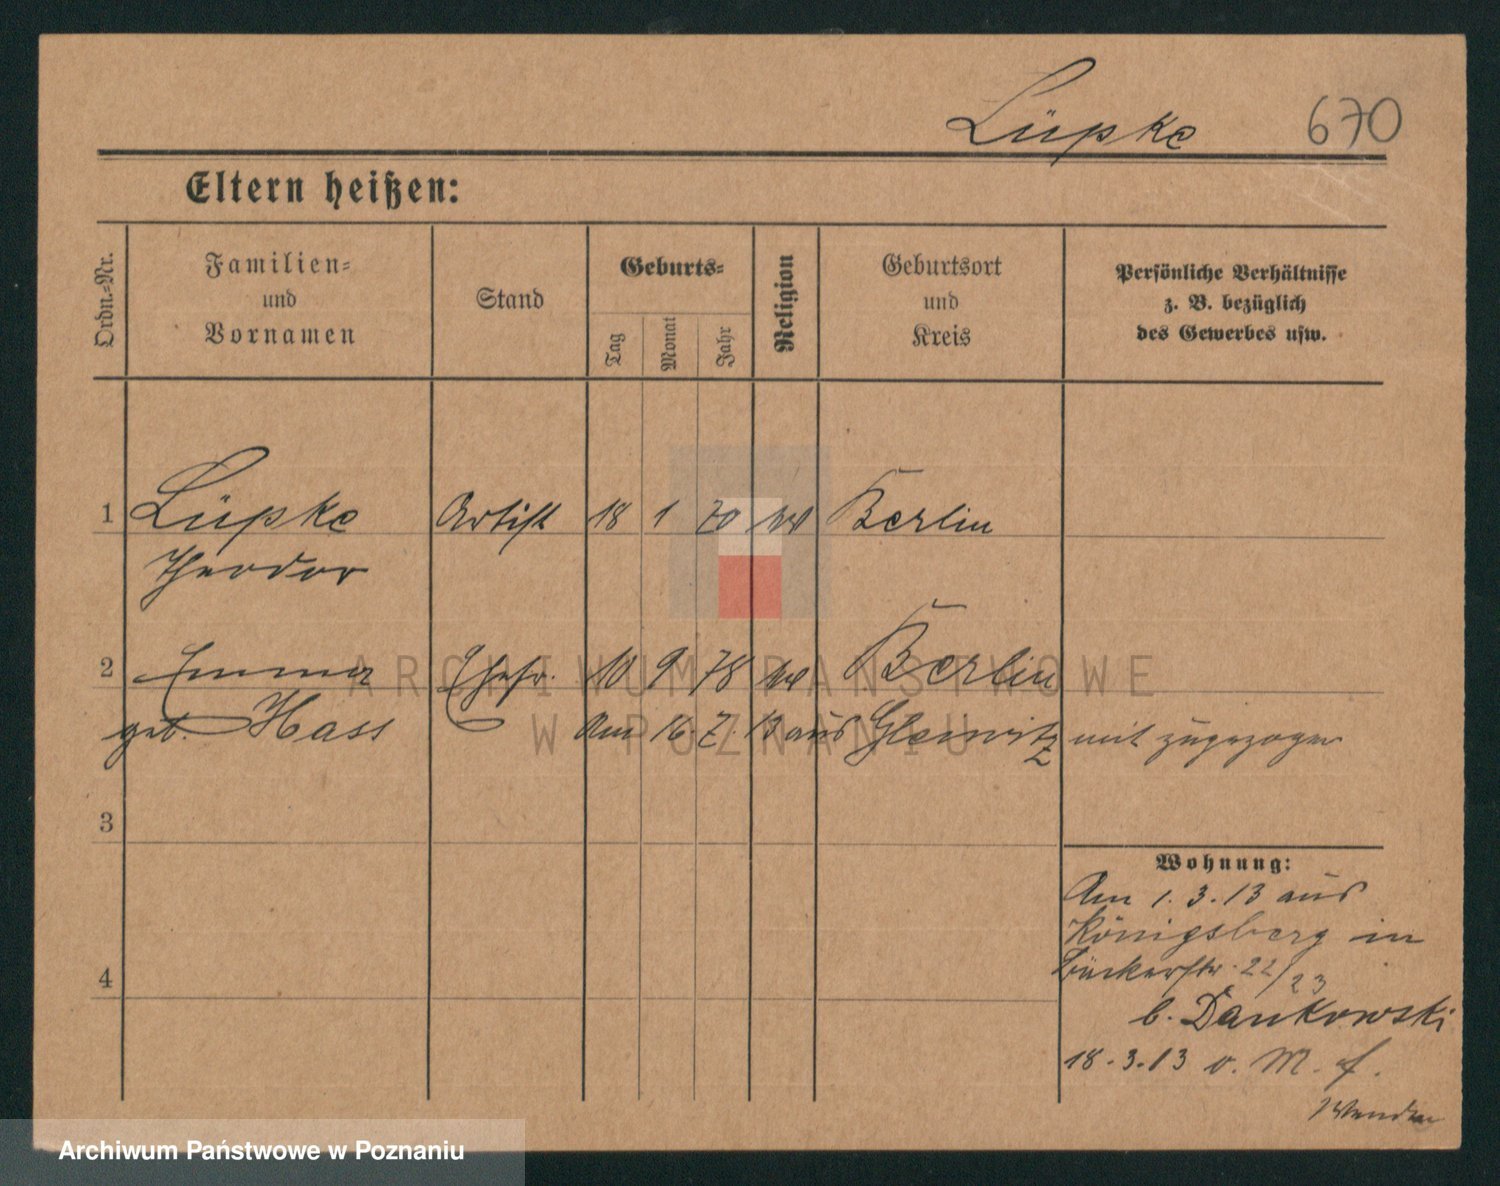 Lüpke 670
Eltern heißen:
Ordn.-Nr.
Familien-
und
Vornamen
Stand
Geburts-
Tag
Monat
Jahr
Religion
Geburtsort
und
Kreis
Persönliche Verhältnisse
z. B. bezüglich
des Gewerbes usw.
1 Lüpke Artist 18 1 70 Berlin
Theodor
2 Emma Ehefr. 10 9 78 Berlin
geb. Hass Am 16. 7. 13 aus Gleiwitz mit zugezogen
3
Wohnung:
Am 1. 3. 13 aus
Königsberg in
Bäckerstr. 22/23
b. Dankowski
4
18.3.13 v. M. f.
Wenden
ARCHIWUM PAŃSTWOWE
W POZNANIU
Archiwum Państwowe w Poznaniu